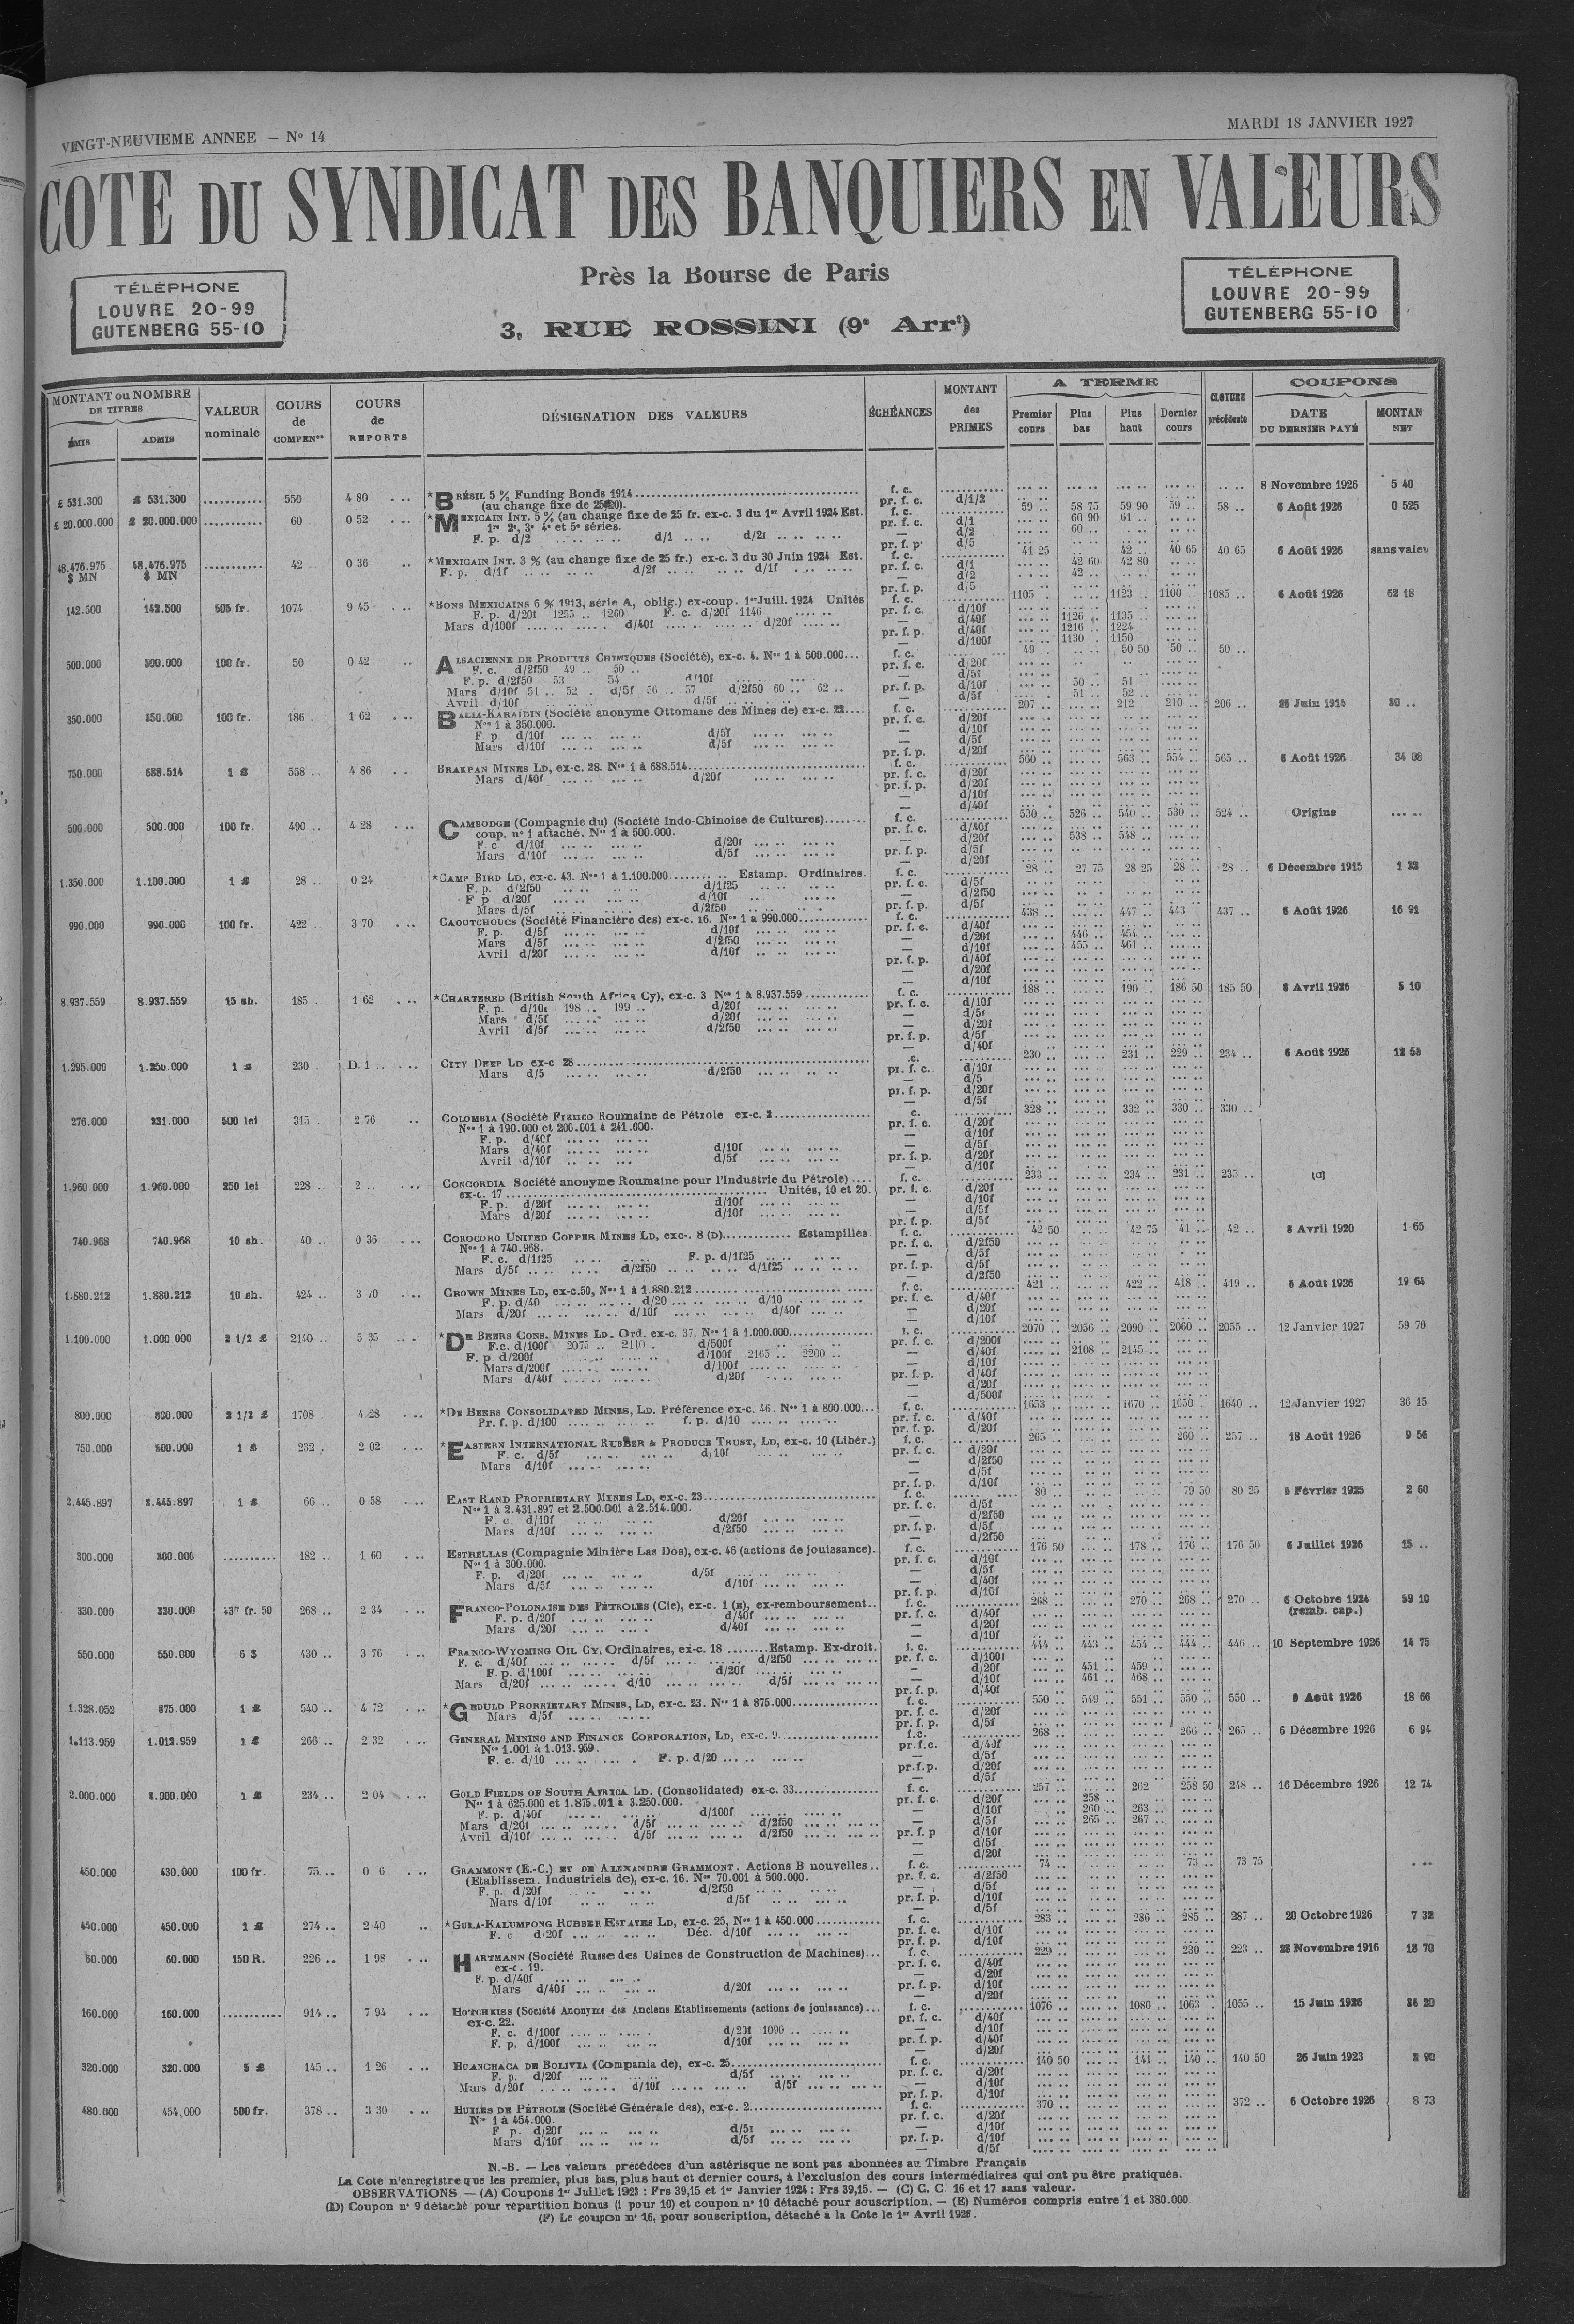 VINGT-NEUVIEME ANNEE — No 14
MARDI 18 JANVIER 1927
COTE DU SYNDICAT DES BANQUIERS EN VALEURS
Près la Bourse de Paris
3, RUE ROSSINI (9e Arrt)
TÉLÉPHONE
LOUVRE 20-99
GUTENBERG 55-10
TÉLÉPHONE
LOUVRE 20-99
GUTENBERG 55-10
MONTANT ou NOMBRE DE TITRES
ÉMIS ADMIS
VALEUR nominale
COURS de COMPENon
COURS de REPORTS
DÉSIGNATION DES VALEURS
ÉCHÉANCES
MONTANT des PRIMES
A TERME
Premier cours Plus bas Plus haut Dernier cours
CLOTURE précédente
COUPONS
DATE DU DERNIER PAYÉ MONTAN NET
£ 531.300 £ 531.300 ........... 550 4 80 *BRÉSIL 5 % Funding Bonds 1914 f. c. 8 Novembre 1926 5 40
(au change fixe de 25f20). pr. f. c. d/1/2
£ 20.000.000 £ 20.000.000 ........... 60 0 52 *MEXICAIN INT. 5 % (au change fixe de 25 fr. ex-c. 3 du 1er Avril 1924 Est. f. c. 59 .. 58 75 59 90 59 .. 58 .. 6 Août 1926 0 525
1re 2e, 3e 4e et 5e séries. pr. f. c. d/1 60 90 61 ..
F. p. d/2 d/1 d/2f — d/2 60 ..
pr. f. p. d/5
48.476.975 $ MN 48.476.975 $ MN ........... 42 0 36 *MEXICAIN INT. 3 % (au change fixe de 25 fr.) ex-c. 3 du 30 Juin 1924 Est. f. c. 41 25 42 .. 40 65 40 65 6 Août 1926 sans valeu
F. p. d/1f d/2f d/1f pr. f. c. d/1 42 60 42 80
— d/2 42 ..
pr. f. p. d/5
142.500 142.500 505 fr. 1074 9 45 *BONS MEXICAINS 6 % 1913, série A, oblig.) ex-coup. 1er Juill. 1924 Unités f. c. 1105 1123 .. 1100 1085 .. 6 Août 1926 62 18
F. p. d/20f 1255 .. 1260 F. c. d/20f 1146 pr. f. c. d/10f
Mars d/100f d/40f d/20f — d/40f 1126 1135 ..
pr. f. p. d/40f 1216 .. 1224
— d/100f 1130 1150
500.000 500.000 100 fr. 50 0 42 ALSACIENNE DE PRODUITS CHIMIQUES (Société), ex-c. 4. Nos 1 à 500.000 f. c. 49 50 50 50 .. 50 ..
F. c. d/2f50 49 .. 50 .. pr. f. c. d/20f
F. p. d/2f50 53 54 d/10f — d/5f
Mars d/10f 51 .. 52 . d/5f 56 .. 57 d/2f50 60 .. 62 .. pr. f. p. d/10f 50 .. 51 ..
Avril d/10f d/5f — d/5f 51 .. 52 ..
350.000 350.000 100 fr. 186 1 62 BALIA-KARAÏDIN (Société anonyme Ottomane des Mines de) ex-c. 22 f. c. 207 .. 212 210 .. 206 .. 25 Juin 1914 30 ..
Nos 1 à 350.000. pr. f. c. d/20f
F. p. d/10f d/5f — d/10f
Mars d/10f d/5f — d/5f
pr. f. p. d/20f
750.000 688.514 1 £ 558 .. 4 86 BRAKPAN MINES LD, ex-c. 28. Nos 1 à 688.514 f. c. 560 563 .. 554 .. 565 .. 6 Août 1926 34 08
Mars d/40f d/20f pr. f. c. d/20f
pr. f. p. d/20f
— d/10f
— d/40f
500.000 500.000 100 fr. 490 .. 4 28 CAMBODGE (Compagnie du) (Société Indo-Chinoise de Cultures) f. c. 530 .. 526 .. 540 .. 530 .. 524 .. Origine
coup. no 1 attaché. Nos 1 à 500.000. pr. f. c. d/40f
F. c d/10f d/20f — d/20f 538 .. 548 ..
Mars d/10f d/5f pr. f. p. d/5f
— d/20f
1.350.000 1.100.000 1 £ 28 .. 0 24 *CAMP BIRD LD, ex-c. 43. Nos 1 à 1.100.000 Estamp. Ordinaires. f. c. 28 .. 27 75 28 25 28 .. 28 .. 6 Décembre 1915 1 32
F. p. d/2f50 d/1f25 pr. f. c. d/5f
F p d/20f d/10f — d/2f50
Mars d/5f d/2f50 pr. f. p. d/5f
990.000 990.000 100 fr. 422 .. 3 70 CAOUTCHOUCS (Société Financière des) ex-c. 16. Nos 1 à 990.000 f. c. 438 .. 447 .. 443 437 .. 6 Août 1926 16 91
F. p. d/5f d/10f pr. f. c. d/40f
Mars d/5f d/2f50 — d/20f 446 .. 454 ..
Avril d/20f d/10f — d/10f 455 .. 461 ..
pr. f. p. d/40f
— d/20f
— d/10f
8.937.559 8.937.559 15 sh. 185 .. 1 62 *CHARTERED (British South Africa Cy), ex-c. 3 Nos 1 à 8.937.559 f. c. 188 .. 190 .. 186 50 185 50 8 Avril 1926 5 10
F. p. d/10f 198 .. 199 .. d/20f pr. f. c. d/10f
Mars d/5f d/20f — d/5f
Avril d/5f d/2f50 — d/20f
pr. f. p. d/5f
— d/40f
1.295.000 1.250.000 1 £ 230 D. 1 .. CITY DEEP LD ex-c 28 .c. 230 .. 231 .. 229 .. 234 .. 6 Août 1926 12 55
Mars d/5 d/2f50 pr. f. c. d/10f
— d/5
pr. f. p. d/20f
— d/5f
276.000 231.000 500 lei 315 2 76 COLOMBIA (Société Franco Roumaine de Pétrole ex-c. 2 c. 328 .. 332 .. 330 .. 330 ..
Nos 1 à 190.000 et 200.001 à 241.000. pr. f. c. d/20f
F. p. d/40f — d/10f
Mars d/40f d/10f — d/5f
Avril d/10f d/5f pr. f. p. d/20f
— d/10f
1.960.000 1.960.000 250 lei 228 .. 2 .. CONCORDIA Société anonyme Roumaine pour l'Industrie du Pétrole) f. c. 233 234 .. 231 .. 235 .. (C)
ex-c. 17 Unités, 10 et 20. pr. f. c. d/20f
F. p. d/20f d/10f — d/10f
Mars d/20f d/10f — d/5f
pr. f. p. d/5f
740.968 740.968 10 sh. 40 .. 0 36 COROCORO UNITED COPPER MINES LD, exc-. 8 (D) Estampillés f. c. 42 50 42 75 41 .. 42 .. 8 Avril 1920 1 65
Nos 1 à 740.968. pr. f. c. d/2f50
F. c. d/1f25 F. p. d/1f25 — d/5f
Mars d/5f d/2f50 d/1f25 pr. f. p. d/5f
— d/2f50
1.880.212 1.880.212 10 sh. 424 .. 3 70 CROWN MINES LD, ex-c.50, Nos 1 à 1.880.212 f. c. 421 422 .. 418 .. 419 .. 6 Août 1926 19 64
F. p. d/40 d/20 d/10 pr. f. c. d/40f
Mars d/20f d/10f d/40f — d/20f
— d/10f
1.100.000 1.000.000 2 1/2 £ 2140 .. 5 35 *DE BEERS CONS. MINES LD. Ord. ex-c. 37. Nos 1 à 1.000.000 f. c. 2070 .. 2056 .. 2090 .. 2060 .. 2055 .. 12 Janvier 1927 59 70
F.c. d/100f 2075 .. 2110 . d/500f pr. f. c. d/200f
F. p. d/200f d/100f 2165 .. 2200 .. — d/40f 2108 .. 2145 ..
Mars d/200f d/100f — d/10f
Mars d/40f d/20f pr. f. p. d/40f
— d/20f
— d/500f
800.000 800.000 2 1/2 £ 1708 4 28 *DE BEERS CONSOLIDATED MINES, LD. Préférence ex-c. 46. Nos 1 à 800.000 f. c. 1653 1670 .. 1650 1640 .. 12 Janvier 1927 36 15
Pr. f. p. d/100 f. p. d/10 pr. f. c. d/40f
pr. f. p. d/20f
750.000 500.000 1 £ 232 . 2 02 *EASTERN INTERNATIONAL RUBBER & PRODUCE TRUST, LD, ex-c. 10 (Libér.) f. c. 265 260 .. 257 .. 18 Août 1926 9 56
F. c. d/5f d/10f pr. f. c. d/20f
Mars d/10f — d/2f50
— d/5f
pr. f. p. d/10f
2.445.897 2.445.897 1 £ 66 .. 0 58 EAST RAND PROPRIETARY MINES LD, ex-c. 23 f. c. 80 .. 79 50 80 25 5 Février 1925 2 60
Nos 1 à 2.431.897 et 2.500.001 à 2.514.000. pr. f. c. d/5f
F. c. d/10f d/20f — d/2f50
Mars d/10f d/2f50 pr. f. p. d/5f
— d/2f50
300.000 300.000 ........... 182 .. 1 60 ESTRELLAS (Compagnie Minière Las Dos), ex-c. 46 (actions de jouissance). f. c. 176 50 178 .. 176 .. 176 50 6 Juillet 1926 15 ..
Nos 1 à 300.000. pr. f. c. d/10f
F. p. d/20f d/5f — d/5f
Mars d/5f d/10f — d/40f
pr. f. p. d/10f
330.000 330.000 437 fr. 50 268 .. 2 34 FRANCO-POLONAISE DES PÉTROLES (Cie), ex-c. 1 (E), ex-remboursement f. c. 268 .. 270 .. 268 .. 270 .. 6 Octobre 1924 59 10
F. p. d/20f d/40f pr. f. c. d/40f (remb. cap.)
Mars d/20f d/40f — d/20f
— d/10f
550.000 550.000 6 $ 430 .. 3 76 FRANCO-WYOMING OIL CY, Ordinaires, ex-c. 18 Estamp. Ex-droit. f. c. 444 .. 443 .. 454 .. 444 .. 446 .. 10 Septembre 1926 14 75
F. c. d/40f d/5f d/2f50 pr. f. c. d/100f
F. p. d/100f d/20f — d/20f 451 .. 459 ..
Mars d/20f d/10 d/5f — d/10f 461 .. 468 ..
pr. f. p. d/40f
1.328.052 875.000 1 £ 540 .. 4 72 *GEDULD PROPRIETARY MINES, LD, ex-c. 23. Nos 1 à 875.000 f. c. 550 .. 549 .. 551 .. 550 .. 550 .. 6 Août 1926 18 66
Mars d/5f pr. f. c. d/20f
pr. f. p. d/5f
1.113.959 1.012.959 1 £ 266 .. 2 32 GENERAL MINING AND FINANCE CORPORATION, LD, ex-c. 9 f.c. 268 .. 266 .. 265 .. 6 Décembre 1926 6 94
Nos 1.001 à 1.013.959. pr.f.c. d/40f
F. c. d/10 F. p. d/20 — d/5f
pr.f.p. d/20f
— d/5f
2.000.000 2.000.000 1 £ 234 .. 2 04 GOLD FIELDS OF SOUTH AFRICA LD. (Consolidated) ex-c. 33 f. c. 257 .. 262 258 50 248 .. 16 Décembre 1926 12 74
Nos 1 à 625.000 et 1.875.001 à 3.250.000. pr. f. c. d/20f 258 ..
F. p. d/40f d/100f — d/10f 260 .. 263 ..
Mars d/20f d/5f d/2f50 — d/5f 265 .. 267 ..
Avril d/10f d/5f d/2f50 pr. f. p d/10f
— d/5f
— d/20f
450.000 430.000 100 fr. 75 .. 0 6 GRAMMONT (E.-C.) ET DE ALEXANDRE GRAMMONT. Actions B nouvelles f. c. 74 .. 73 .. 73 75
(Etablissem. Industriels de), ex-c. 16. Nos 70.001 à 500.000. pr. f. c. d/2f50
F. p. d/20f d/2f50 — d/5f
Mars d/10f d/5f pr. f. p. d/10f
— d/5f
450.000 450.000 1 £ 274 .. 2 40 *GULA-KALUMPONG RUBBER ESTATES LD, ex-c. 25, Nos 1 à 450.000 f. c. 283 .. 286 .. 285 .. 287 .. 20 Octobre 1926 7 32
F. c d/20f Déc. d/10f pr. f. c. d/10f
pr. f. p. d/10f
60.000 60.000 150 R. 226 .. 1 98 HARTMANN (Société Russe des Usines de Construction de Machines) f. c. 229 230 .. 223 .. 28 Novembre 1916 18 70
ex-c. 19. pr. f. c. d/40f
F. p. d/40f — d/20f
Mars d/40f d/20f pr. f. p. d/10f
— d/20f
160.000 160.000 ........... 914 .. 7 94 HOTCHKISS (Société Anonyme des Anciens Etablissements (actions de jouissance) f. c. 1076 .. 1080 .. 1063 . 1055 .. 15 Juin 1926 34 20
ex-c. 22. pr. f. c. d/40f
F. c. d/100f d/20f 1090 .. — d/10f
F. p. d/100f d/10f pr. f. p. d/40f
— d/20f
320.000 320.000 5 £ 145 .. 1 26 HUANCHACA DE BOLIVIA (Compania de), ex-c. 25 f. c. 140 50 141 .. 140 .. 140 50 26 Juin 1923 2 90
F. p. d/20f d/5f pr. f. c. d/20f
Mars d/20f d/10f d/5f — d/10f
pr. f. p. d/10f
480.000 454.000 500 fr. 378 .. 3 30 HUILES DE PÉTROLE (Société Générale des), ex-c. 2 f. c. 370 372 .. 6 Octobre 1926 8 73
Nos 1 à 454.000. pr. f. c. d/20f
F p. d/20f d/5f — d/10f
Mars d/10f d/5f pr. f. p. d/10f
— d/5f
N.-B. — Les valeurs précédées d'un astérisque ne sont pas abonnées au Timbre Français
La Cote n'enregistre que les premier, plus bas, plus haut et dernier cours, à l'exclusion des cours intermédiaires qui ont pu être pratiqués.
OBSERVATIONS. — (A) Coupons 1er Juillet 1923 : Frs 39,15 et 1er Janvier 1924 : Frs 39,15. — (C) C. C. 16 et 17 sans valeur.
(D) Coupon no 9 détaché pour repartition bonus (1 pour 10) et coupon no 10 détaché pour souscription. — (E) Numéros compris entre 1 et 380.000
(F) Le coupon no 16, pour souscription, détaché à la Cote le 1er Avril 1926.